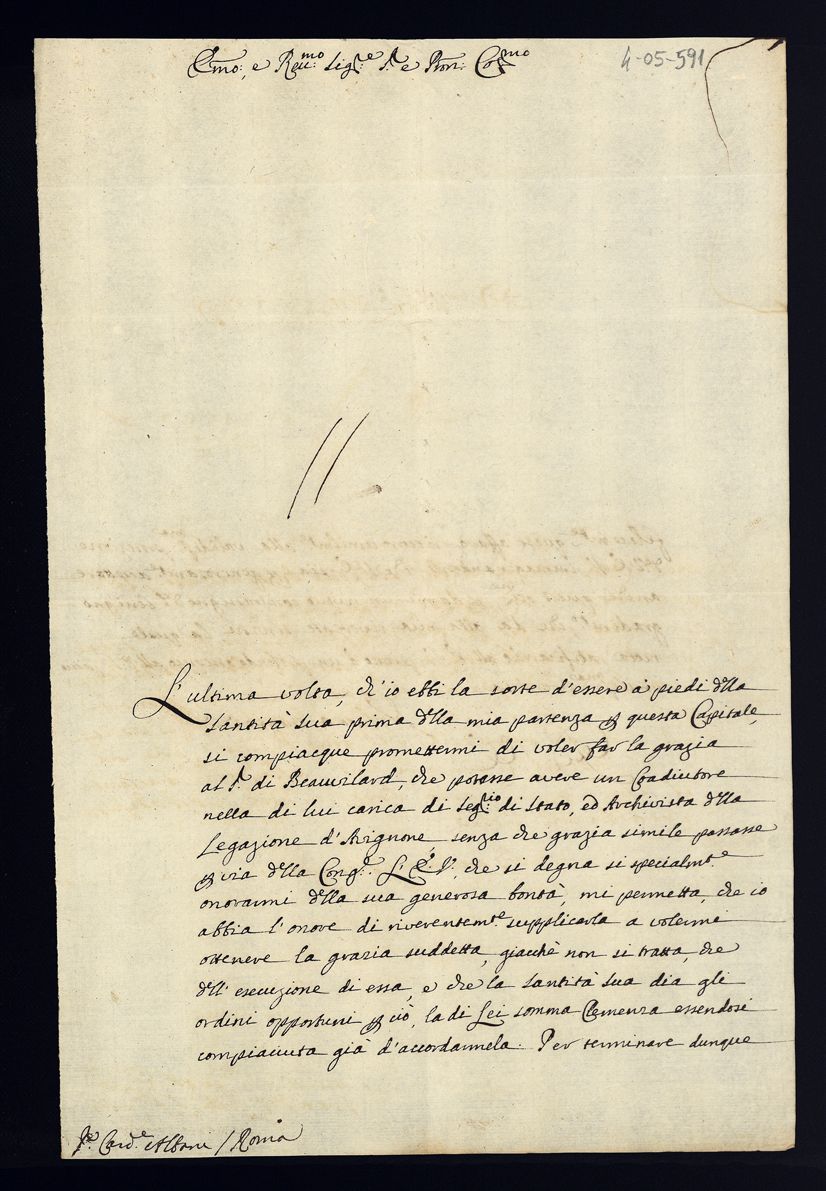 Emo:, e Reu:mo Sig:re S.r e Pron: Co:mo
4-05-591
L'ultima volta, ch'io ebbi la sorte d'essere a' piedi della
Santità sua prima della mia partenza p questa Capitale,
si compiacque promettermi di voler far la grazia
al S.r di Beauvilard, che potesse avere un Coadiutore
nella di lui carica di Seg:rio di Stato, ed Archivista della
Legazione d'Avignone, senza che grazia simile passasse
p via della Cong.e L'E.V., che si degna si specialmte
onorarmi della sua generosa bontà, mi permetta, che io
abbia l'onore di riverentem.te supplicarla a volermi
ottenere la grazia suddetta, giacchè non si tratta, che
dell'esecuzione di essa, e che la Santità sua dia gli
ordini opportuni p ciò, la di Lei somma Clemenza essendosi
compiaciuta già d'accordarmela. Per terminare dunque
Card.e Albani / Roma